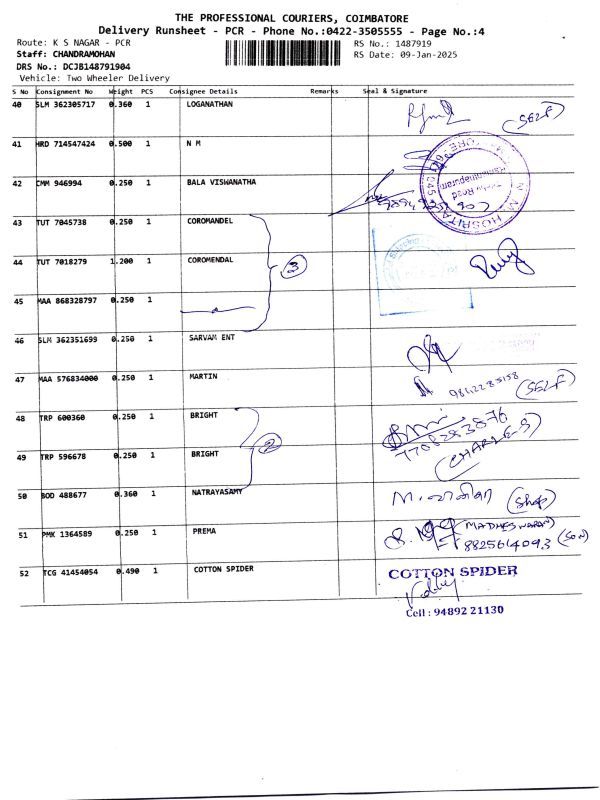 THE PROFESSIONAL COURIERS, COIMBATORE
Delivery Runsheet - PCR - Phone No.:0422-3505555 - Page No.:4
Route: K S NAGAR - PCR
RS No.: 1487919
Staff: CHANDRAMOHAN
RS Date: 09-Jan-2025
DRS No.: DCJB148791904
Vehicle: Two Wheeler Delivery
S No Consignment No Weight PCS Consignee Details Remarks Seal & Signature
40 SLM 362305717 0.360 1 LOGANATHAN
(SELF)
41 HRD 714547424 0.500 1 N M
42 CMM 946994 0.250 1 BALA VISWANATHA
N M HOSPITAL
43 TUT 7045738 0.250 1 COROMANDEL
44 TUT 7018279 1.200 1 COROMENDAL
3
45 MAA 868328797 0.250 1
46 SLM 362351699 0.250 1 SARVAM ENT
47 MAA 576834000 0.250 1 MARTIN
9842283158 (SELF)
48 TRP 600360 0.250 1 BRIGHT
7708283876
2
49 TRP 596678 0.250 1 BRIGHT
(CHARLES)
50 BOD 488677 0.360 1 NATRAYASAMY
(Shop)
51 PMK 1364589 0.250 1 PREMA
MADHESWARAN
8825614093 (SON)
52 TCG 41454054 0.490 1 COTTON SPIDER
COTTON SPIDER
Cell : 94892 21130